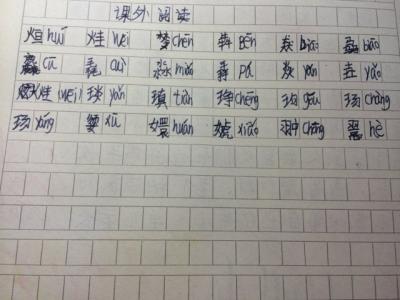 课外阅读
huǐ 烓 wei chēn 犇 Bēn 猋 biāo 骉 biāo
麤 cū 毳 cuì 淼 miǎo pá 焱 yàn 垚 yáo
烓 (wei) 琰 yǎn 瑱 tiàn 琤 chēng 玽 gǒu 玚 chàng
玚 yáng 嬃 xū 嬛 huán 婋 xiāo 翀 chōng 翯 hè